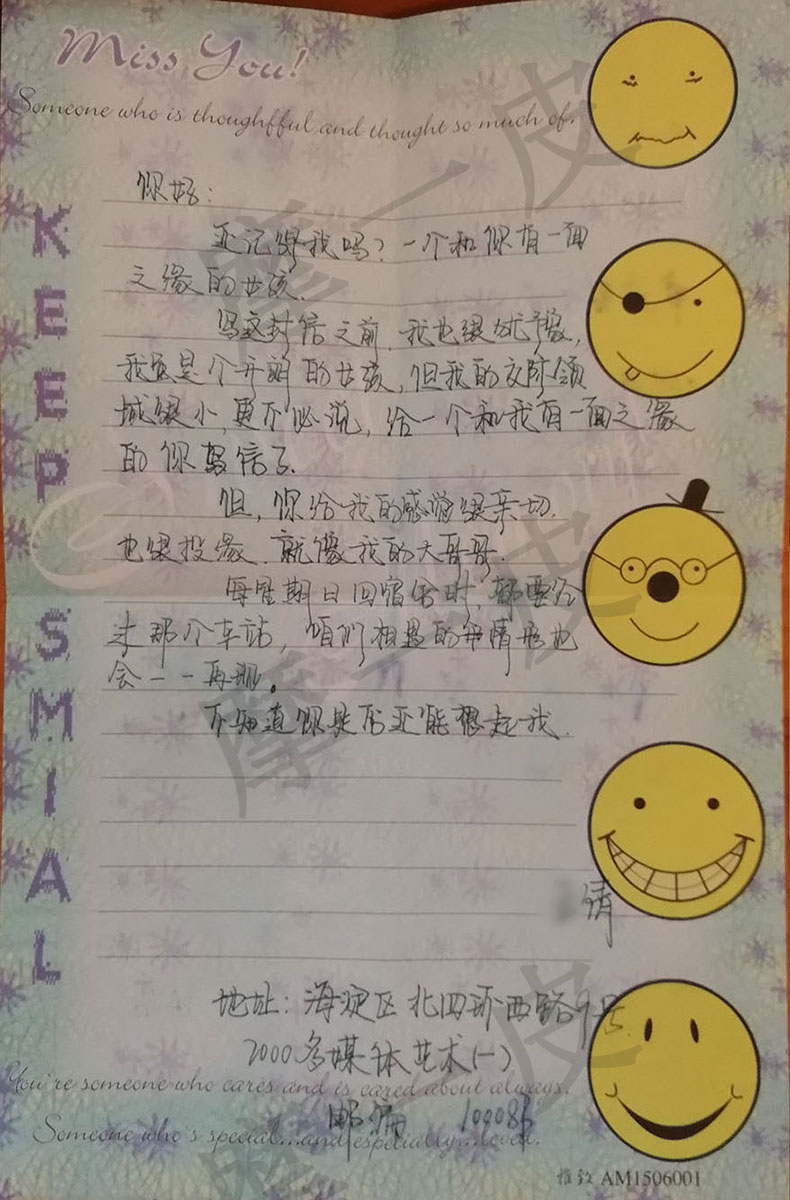 Miss You!
Someone who is thoughffful and thought so much of.
KEEP SMIAL
你好：
还记得我吗？一个和你有一面
之缘的女孩.
写这封信之前，我也很犹豫，
我虽是个开朗的女孩，但我的交际领
域很小，更不必说，给一个和我有一面之缘
的你写信了.
但，你给我的感觉很亲切.
也很投缘.就像我的大哥哥.
每星期日回宿舍时，都要经
过那个车站，咱们相遇的情形也
会一一再现。
不知道你是否还能想起我.
倩
地址：海淀区北四环西路9号
2000多媒体艺术(一)
You're someone who cares and is cared about always.
邮编 100083
Someone who's special...and especially...loved.
雅致 AM1506001
摩一皮
摩一皮
摩一皮